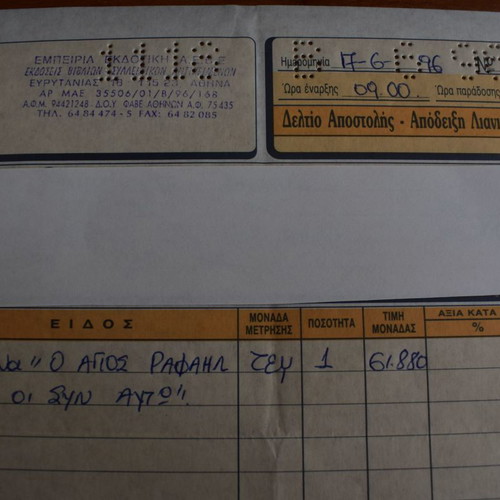 ΕΜΠΕΙΡΙΑ ΕΚΔΟΤΙΚΗ Α.Ε.
ΕΚΔΟΣΕΙΣ ΒΙΒΛΙΩΝ
ΕΥΡΥΤΑΝΙΑΣ 19 115 23 ΑΘΗΝΑ
ΑΡ ΜΑΕ 35506/01/Β/96/168
Α.Φ.Μ. 94421248 - Δ.Ο.Υ ΦΑΒΕ ΑΘΗΝΩΝ Α.Φ. 75435
ΤΗΛ. 64 84 474 - 5 FAX: 64 82 085
Ημερομηνία 17-6-96
Ώρα έναρξης 09.00 Ώρα παράδοσης
Δελτίο Αποστολής - Απόδειξη Λιανι
ΕΙΔΟΣ ΜΟΝΑΔΑ ΜΕΤΡΗΣΗΣ ΠΟΣΟΤΗΤΑ ΤΙΜΗ ΜΟΝΑΔΑΣ ΑΞΙΑ ΚΑΤΑ %
"Ο ΑΓΙΟΣ ΡΑΦΑΗΛ τεμ 1 61.880
ΟΙ ΣΥΝ ΑΥΤΩ".